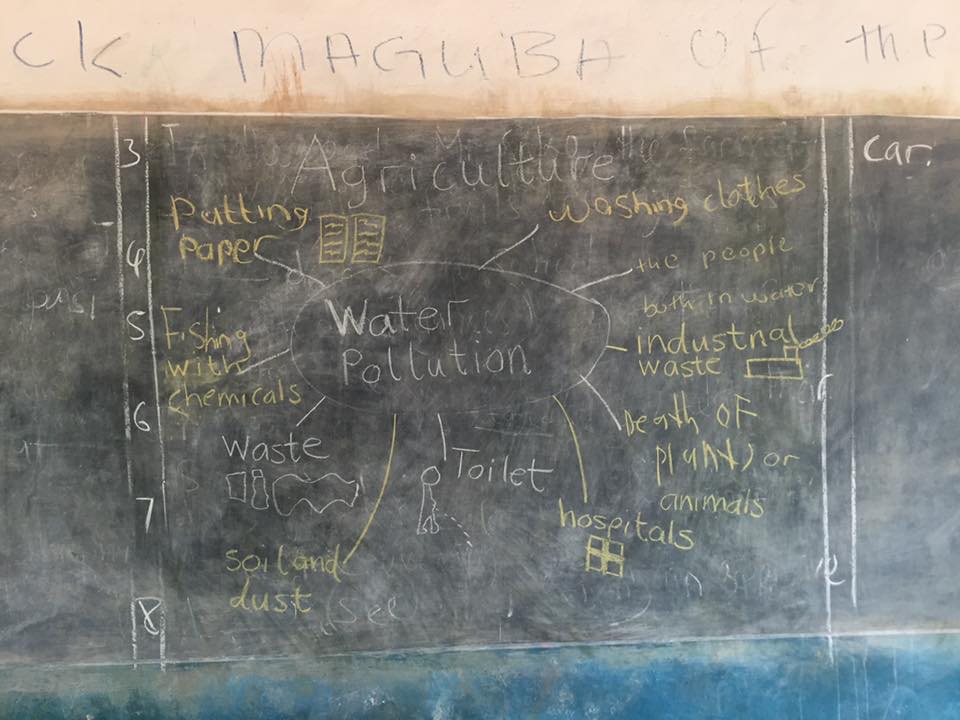 CK MAGUBA OF the
3
Agriculture
car.
Putting
paper
washing clothes
4
the people
both in water
5
Water
Pollution
Fishing
with
chemicals
industrial
waste
6
Death OF
plants or
animals
Waste
Toilet
7
hospitals
soil and
dust
8